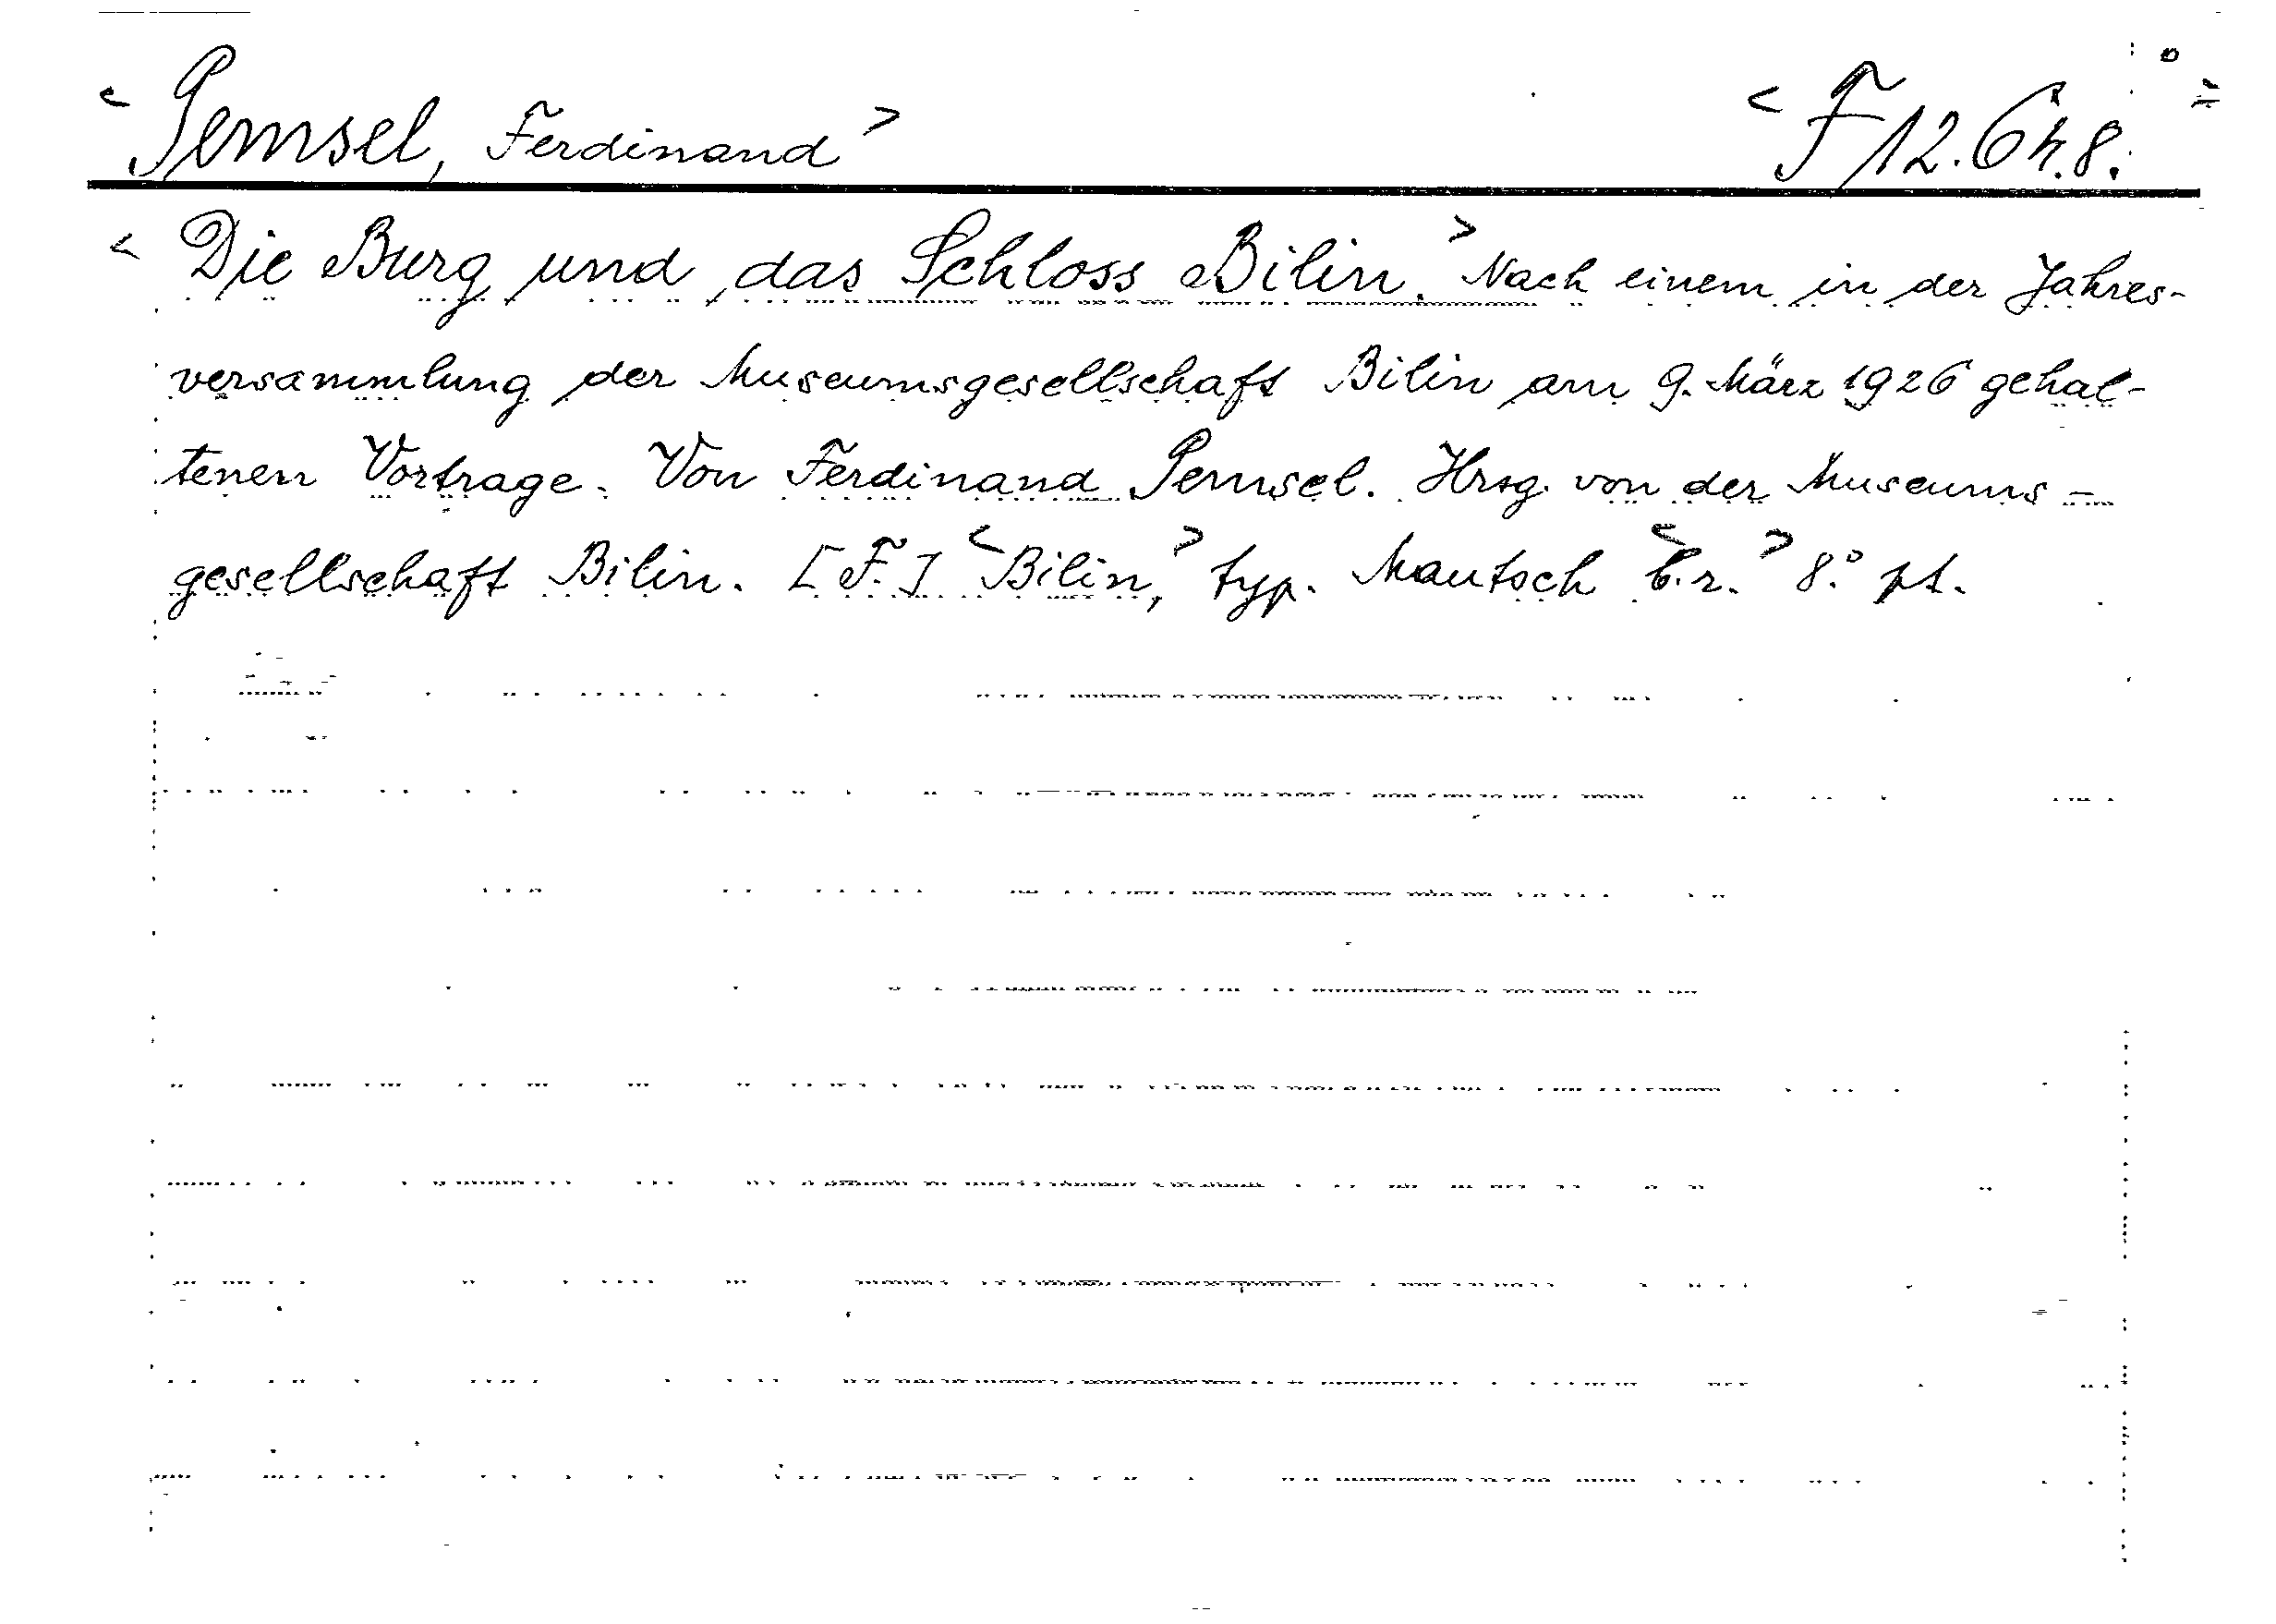 < Pemsel, Ferdinand > < F 12.648.
< Die Burg und das Schloss Bilin. > Nach einem in der Jahres-
versammlung der Museumsgesellschaft Bilin am 9. März 1926 gehal-
tenen Vortrage. Von Ferdinand Pemsel. Hrsg. von der Museums-
gesellschaft Bilin. [F.] < Bilin, > typ. Mautsch < b.r. > 8.° pt.